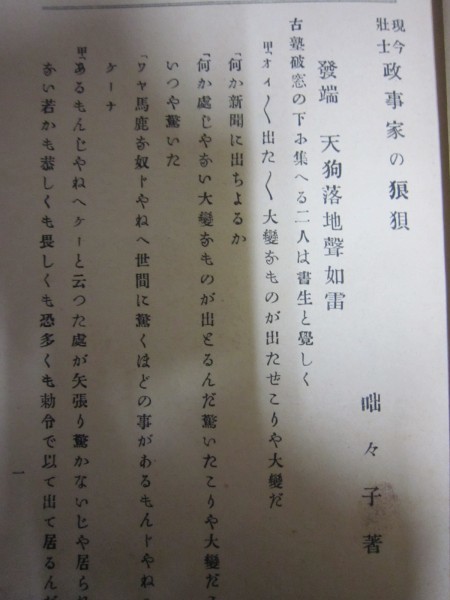 現今壯士 政事家の狼狽
咄々子著
發端 天狗落地聲如雷
古塾破窓の下に集へる二人は書生と覺しく
甲「オイ〳〵出た〳〵大變なものが出たぜこりや大變だ
「何か新聞に出ちよるか
「何か處じやない大變なものが出とるんだ驚いたこりや大變だ
いつや驚いた
「ワヤ馬鹿な奴ドやねへ世間に驚くほどの事があるもんドやねへ
ケーナ
甲「あるもんじやねへケーと云つた處が矢張り驚かないじや居ら
ない若かも恭しくも畏しくも恐多くも勅令で以て出て居るんだ
一